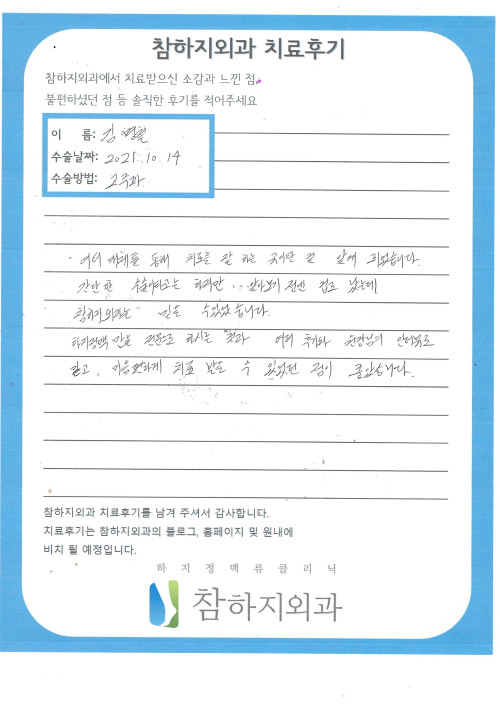 참하지외과 치료후기
참하지외과에서 치료받으신 소감과 느낀 점,
불편하셨던 점 등 솔직한 후기를 적어주세요
이 름: 김
수술날짜: 2021. 10. 14
수술방법: 고주파
여러 매체를 통해 치료를 잘 하는 곳이란 걸 알게 되었습니다.
간단한 수술이라고는 하지만.. 알아보기 전엔 겁도 났는데
참하지외과는 믿을 수 있었습니다.
하지정맥 만을 전문으로 하시는 것과 여러 후기와 원장님의
믿고, 마음 편하게 치료 받을 수 있었던 점이 좋았습니다.
참하지외과 치료후기를 남겨 주셔서 감사합니다.
치료후기는 참하지외과의 블로그, 홈페이지 및 원내에
비치 될 예정입니다.
하지정맥류클리닉
참하지외과